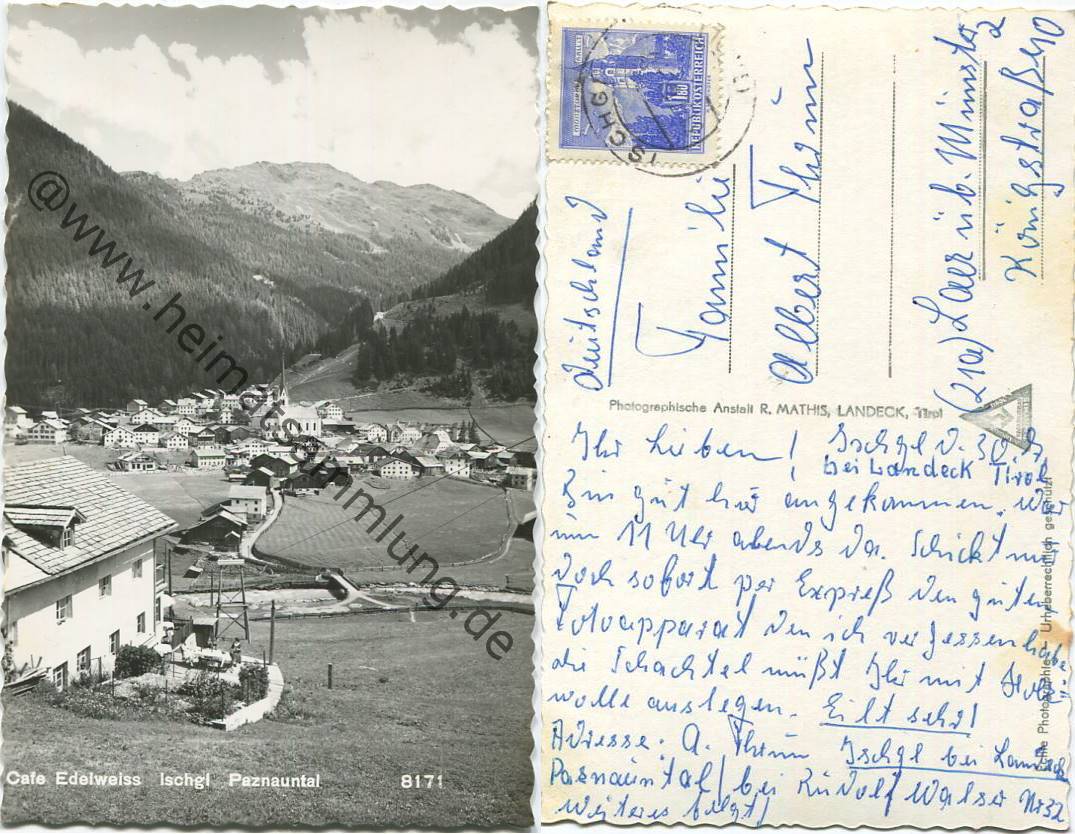 @www.heimatsammlung.de
Cafe Edelweiss Ischgl Paznauntal 8171
REPUBLIK ÖSTERREICH
1.80
ISCHGL
Deutschland
Familie
Albert Thrüm
(21a) Laer üb. Münster
2
Königstraße 40
Photographische Anstalt R. MATHIS, LANDECK, Tirol
Urheberrechtlich geschützt
Ihr Lieben! Ischgl d. 30.
bei Landeck Tirol
Bin gut hier angekommen. War
um 11 Uhr abends da. Schickt mir
doch sofort per Expreß den guten
Fotoapparat den ich vergessen habe
die Schachtel müßt Ihr mit Holz
wolle auslegen. Eilt sehr!
Adresse: A. Thrüm Ischgl bei Landeck
Pasnauntal / bei Rudolf Walser Nr 32
Weiteres folgt!